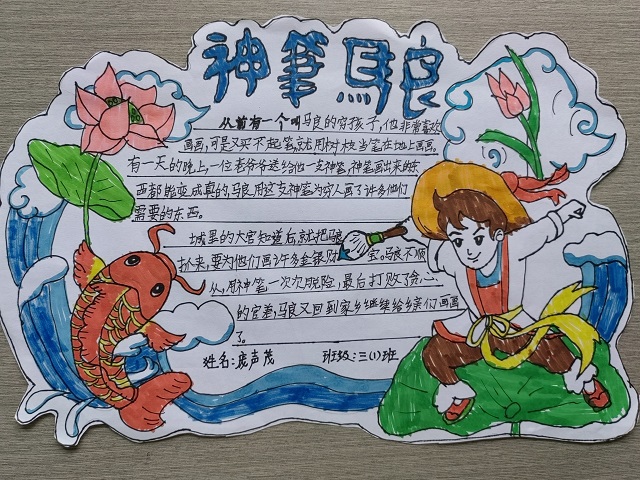 神笔马良
从前有一个叫马良的穷孩子,他非常喜欢
画画,可是又买不起笔,就用树枝当笔在地上画画。
有一天的晚上,一位老爷爷送给他一支神笔,神笔画出来的东
西都能变成真的,马良用这支神笔为穷人画了许多他们
需要的东西。
城里的大官知道后,就把马良
抓来,要为他们画许多金银财宝。马良不顺
从,用神笔一次次脱险,最后打败了贪心
的官差,马良又回到家乡继续给乡亲们画画
了。
姓名:庞声茂 班级:三(1)班